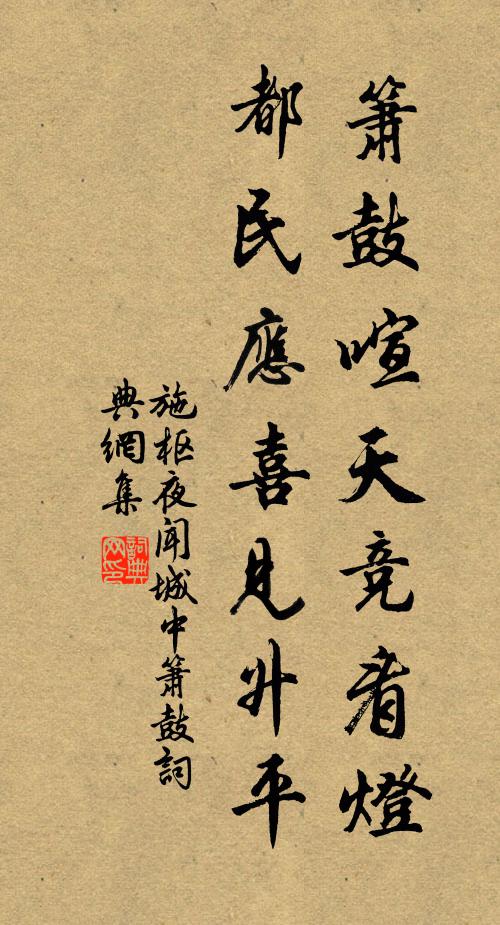 簫鼓喧天竞看燈
都民應喜見升平
施枢夜闻城中簫鼓詞
典網集
詞典
网印